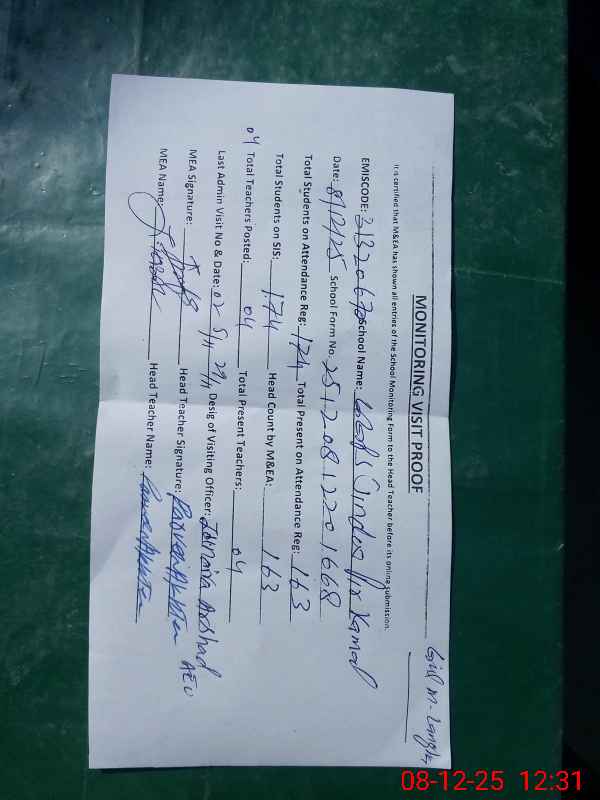 MONITORING VISIT PROOF
It is certified that M&EA has shown all entries of the School Monitoring Form to the Head Teacher before its online submission.
EMISCODE: 31320670 School Name: Kamal
Date: 8/12/25 School Form No: 25120812201668
Total Students on Attendance Reg: 174 Total Present on Attendance Reg: 163
Total Students on SIS: 174 Head Count by M&EA: 163
04 Total Teachers Posted: 04 Total Present Teachers: 04
Last Admin Visit No & Date: 02 5/11 29/11 Desig of Visiting Officer: Arshad AEO
MEA Signature: Head Teacher Signature: Parveen Akhter
MEA Name: Head Teacher Name: Parveen Akhter
08-12-25 12:31